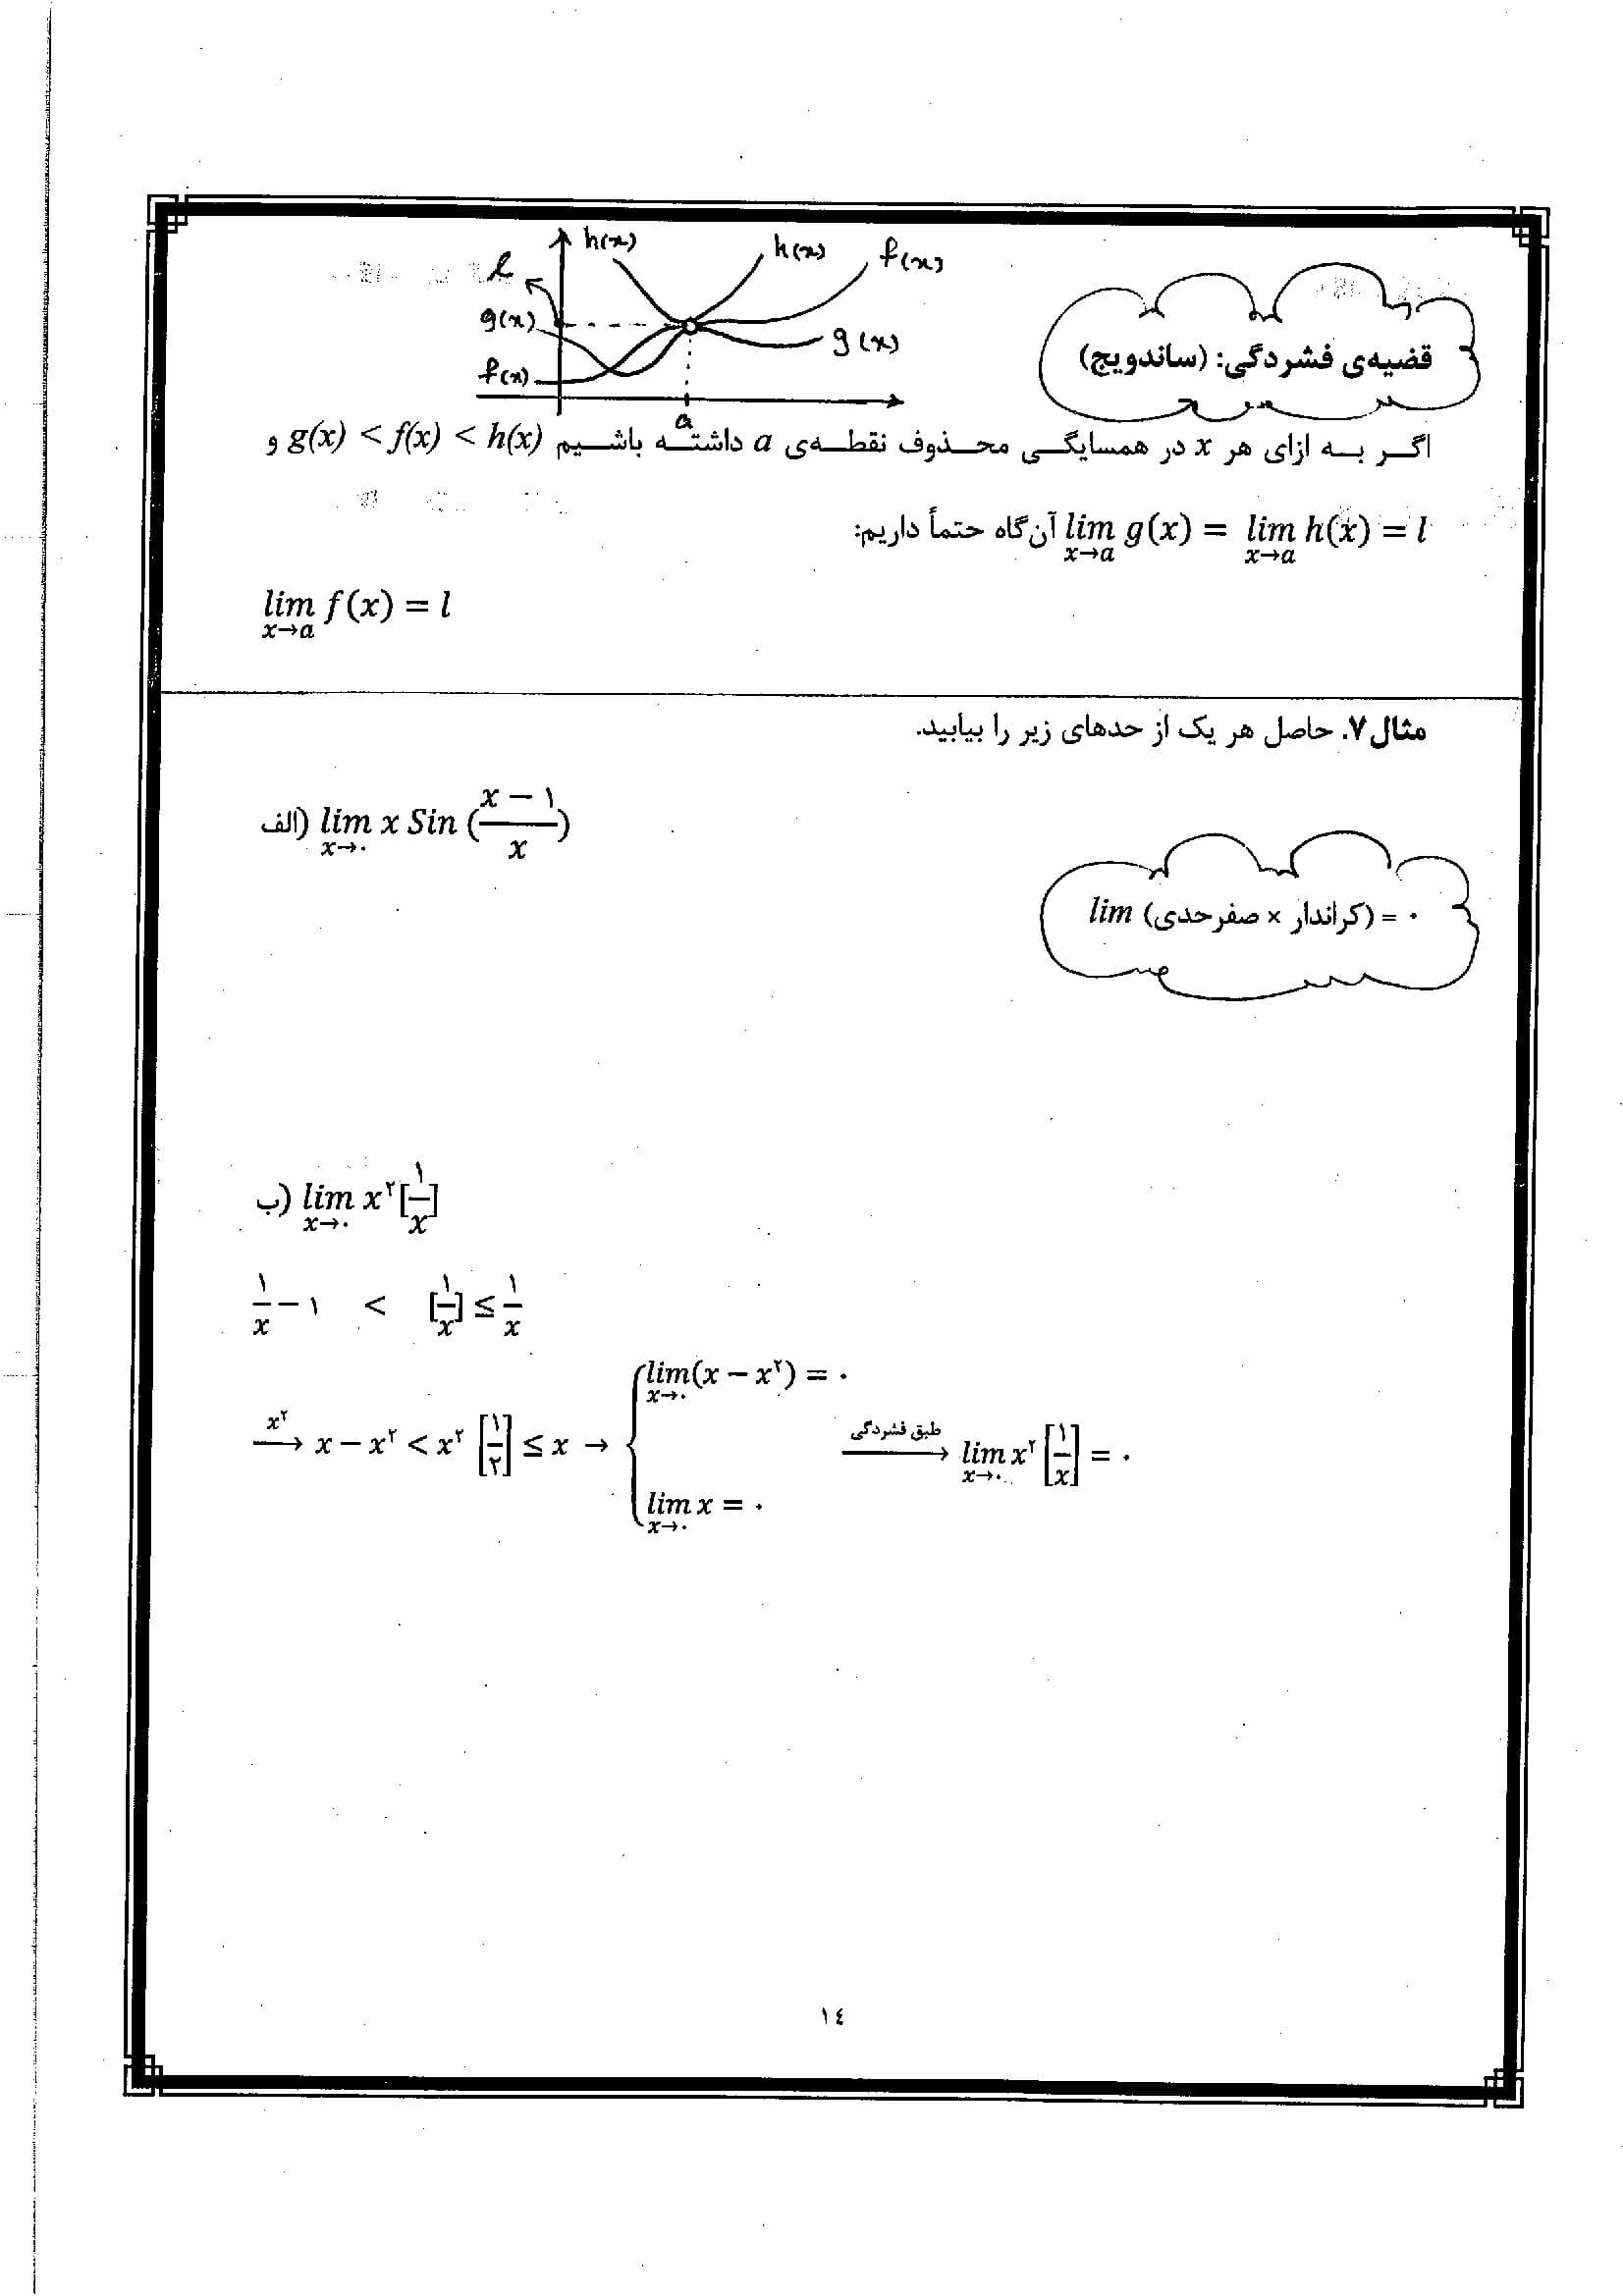 h(x) h(x) f(x)
l
g(x)
g(x)
f(x)
a
قضیه‌ی فشردگی: (ساندویچ)
اگر به ازای هر x در همسایگی محذوف نقطه‌ی a داشته باشیم g(x) < f(x) < h(x) و
lim x→a g(x) = lim x→a h(x) = l آن‌گاه حتماً داریم:
lim x→a f(x) = l
مثال ۷. حاصل هر یک از حدهای زیر را بیابید.
الف) lim x→۰ x Sin ((x − ۱)/x)
lim (کراندار × صفرحدی) = ۰
ب) lim x→۰ x² [۱/x]
۱/x − ۱ < [۱/x] ≤ ۱/x
lim x→۰ (x − x²) = ۰
x² → x − x² < x² [۱/۲] ≤ x → { طبق فشردگی → lim x→۰ x² [۱/x] = ۰
lim x→۰ x = ۰
١٤